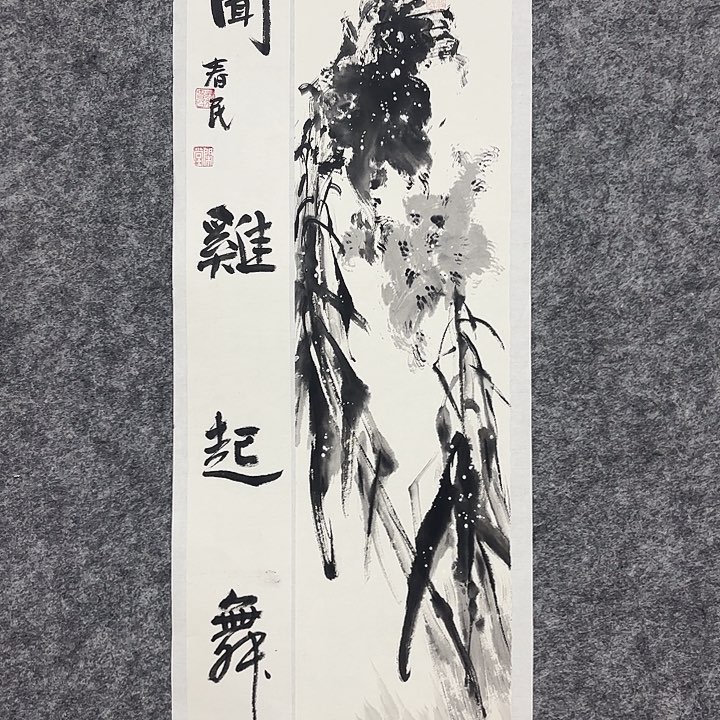 聞雞起舞
春民